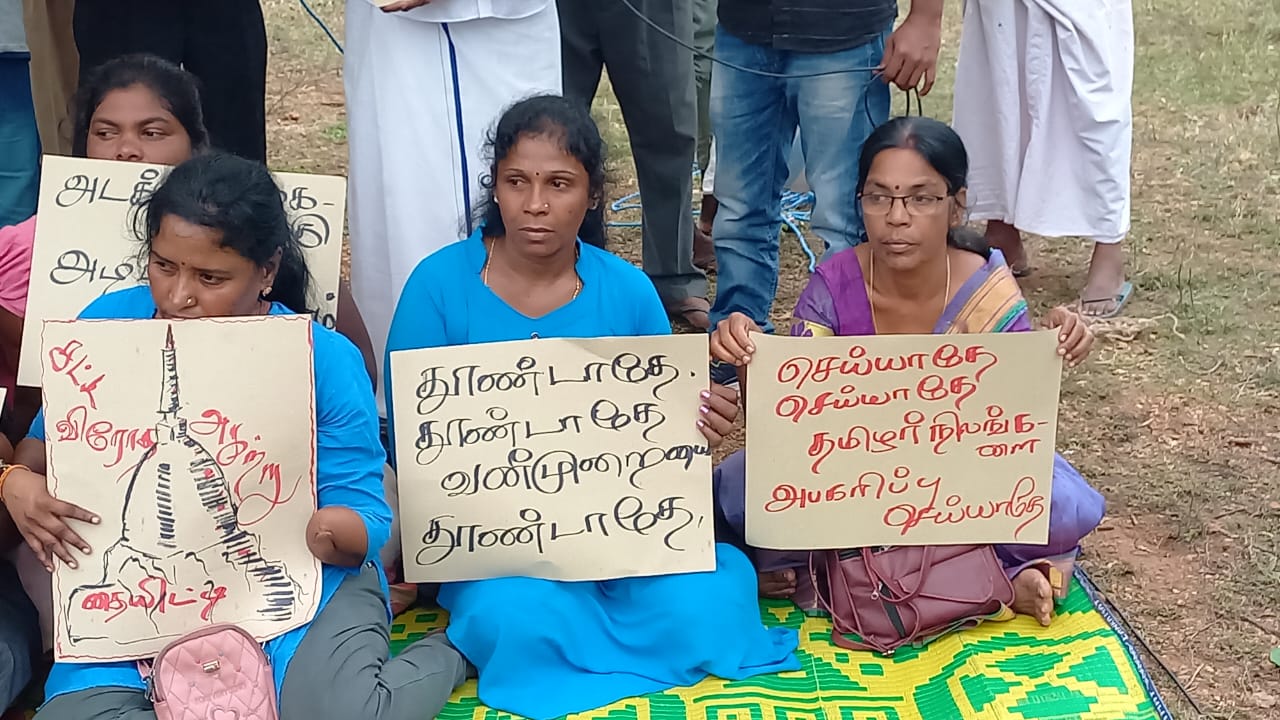 அடக்
அடி
சட்ட
விரோத
அகற்று
தையிட்டி
தூண்டாதே.
தூண்டாதே
வண்முறையை
தூண்டாதே.
செய்யாதே
செய்யாதே
தமிழர் நிலங்க-
ளை
அபகரிப்பு
செய்யாதே